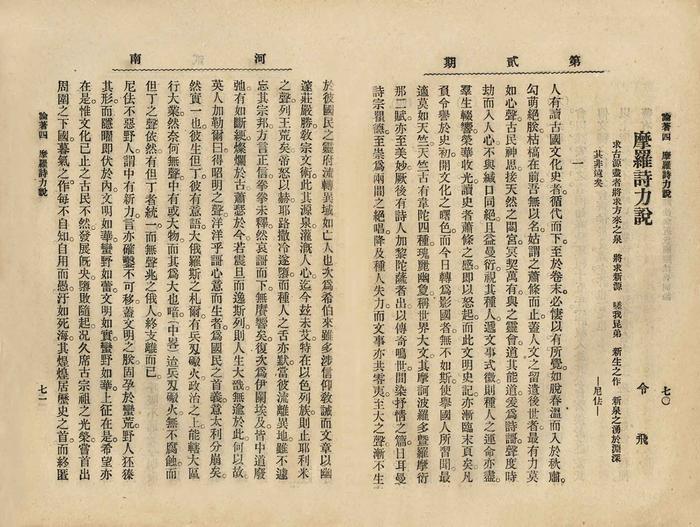 第貳期
論著四　摩羅詩力說　七〇
摩羅詩力說　令飛
求古源盡者將求方來之泉　將求新源　嗟我昆弟　新生之作　新泉之湧於淵深
其非遠矣　—尼佉—
一
人有讀古國文化史者循代而下至於卷末必悽以有所覺如脫春溫而入於秋肅
勾萌絕朕枯槁在前吾無以名姑謂之蕭條而止蓋人文之留遺後世者最有力莫
如心聲古民神思接天然之閟宮冥契萬有與之靈會道其能道爰爲詩謌聲度時
劫而入人心不與緘口同絕且益曼衍視其種人遞文事式微則種人之運命亦盡
羣生輟響榮華收光讀史者蕭條之感即以怒起而此文明史記亦漸臨末頁矣凡
負令譽於史初開文化之曙色而今日轉爲影國者無不如斯使舉國人所習聞最
適莫如天竺天竺古有韋陀四種瑰麗幽敻稱世界大文其摩訶波羅多暨羅摩衍
那二賦亦至美妙厥後有詩人加黎陀薩者出以傳奇鳴世間染抒情之篇日耳曼
詩宗瞿提至崇爲兩間之絕唱降及種人失力而文事亦共零夷至大之聲漸不生
河南
於彼國民之靈府流轉異域如亡人也次爲希伯來雖多涉信仰敎誡而文章以幽
邃莊嚴勝敎宗文術此其源泉灌漑人心迄今玆未艾特在以色列族則止耶利米
之聲列王荒矣帝怒以赫耶路撒冷遂墮而種人之舌亦默當彼流離異地雖不遽
忘其宗邦方言正信拳拳未釋然哀謌而下無賡響矣復次爲伊闌埃及皆中道廢
弛有如斷綆燦爛於古蕭瑟於今若震旦而逸斯列則人生大戩無逾於此何以故
英人加勒爾曰得昭明之聲洋洋乎謌心意而生者爲國民之首義意太利分崩矣
然實一也彼生但丁彼有意語大俄羅斯之札爾有兵刄礮火政治之上能轄大區
行大業然奈何無聲中有或大物而其爲大也喑(中畧)迨兵刄礮火無不腐蝕而
但丁之聲依然有但丁者統一而無聲兆之俄人終支離而已
尼佉不惡野人謂中有新力言亦確鑿不可移蓋文明之朕固孕於蠻荒野人狉獉
其形而隱曜即伏於內文明如華蠻野如蕾文明如實蠻野如華上征在是希望亦
在是惟文化已止之古民不然發展旣央墮敗隨起况久席古宗祖之光榮嘗首出
周圍之下國暮氣之作每不自知自用而愚汙如死海其煌煌居歷史之首而終匿
論著四　摩羅詩力說　七一